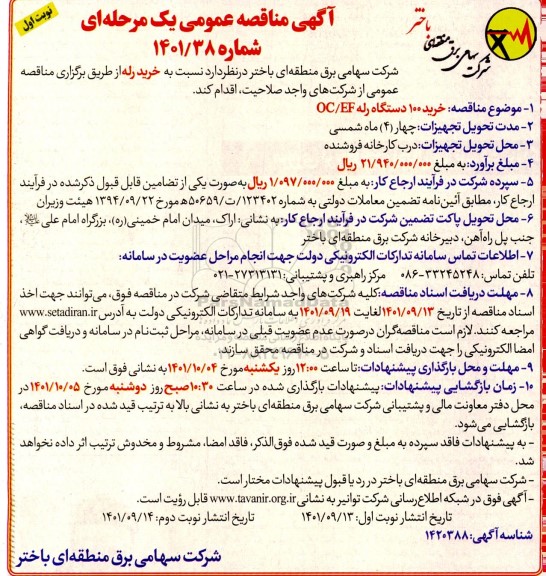 نوبت اول
باختر
شرکت سهامی برق منطقه‌ای
آگهی مناقصه عمومی یک مرحله‌ای
شماره ۱۴۰۱/۳۸
شرکت سهامی برق منطقه‌ای باختر درنظردارد نسبت به خرید رله از طریق برگزاری مناقصه
عمومی از شرکت‌های واجد صلاحیت، اقدام کند.
۱- موضوع مناقصه: خرید ۱۰۰ دستگاه رله OC/EF
۲- مدت تحویل تجهیزات: چهار (۴) ماه شمسی
۳- محل تحویل تجهیزات: درب کارخانه فروشنده
۴- مبلغ برآورد: به مبلغ ۲۱/۹۴۰/۰۰۰/۰۰۰ ریال
۵- سپرده شرکت در فرآیند ارجاع کار: به مبلغ ۱/۰۹۷/۰۰۰/۰۰۰ ریال به‌صورت یکی از تضامین قابل قبول ذکرشده در فرآیند
ارجاع کار، مطابق آئین‌نامه تضمین معاملات دولتی به شماره ۱۲۳۴۰۲/ت۵۰۶۵۹ه مورخ ۱۳۹۴/۰۹/۲۲ هیئت وزیران
۶- محل تحویل پاکت تضمین شرکت در فرآیند ارجاع کار: به نشانی: اراک، میدان امام خمینی(ره)، بزرگراه امام علی ﷺ،
جنب پل راه‌آهن، دبیرخانه شرکت برق منطقه‌ای باختر
۷- اطلاعات تماس سامانه تدارکات الکترونیکی دولت جهت انجام مراحل عضویت در سامانه:
تلفن تماس: ۳۳۲۴۵۲۴۸-۰۸۶ مرکز راهبری و پشتیبانی: ۲۷۳۱۳۱۳۱-۰۲۱
۸- مهلت دریافت اسناد مناقصه: کلیه شرکت‌های واجد شرایط متقاضی شرکت در مناقصه فوق، می‌توانند جهت اخذ
اسناد مناقصه از تاریخ ۱۴۰۱/۰۹/۱۳ لغایت ۱۴۰۱/۰۹/۱۹ به سامانه تدارکات الکترونیکی دولت به آدرس www.setadiran.ir
مراجعه کنند. لازم است مناقصه‌گران درصورت عدم عضویت قبلی در سامانه، مراحل ثبت‌نام در سامانه و دریافت گواهی
امضا الکترونیکی را جهت دریافت اسناد و شرکت در مناقصه محقق سازند.
۹- مهلت و محل بازگذاری پیشنهادات: تا ساعت ۱۲:۰۰ روز یکشنبه مورخ ۱۴۰۱/۱۰/۰۴ به نشانی فوق است.
۱۰- زمان بازگشایی پیشنهادات: پیشنهادات بازگذاری شده در ساعت ۱۰:۳۰ صبح روز دوشنبه مورخ ۱۴۰۱/۱۰/۰۵ در
محل دفتر معاونت مالی و پشتیبانی شرکت سهامی برق منطقه‌ای باختر به نشانی بالا به ترتیب قید شده در اسناد مناقصه،
بازگشایی می‌شود.
- به پیشنهادات فاقد سپرده به مبلغ و صورت قید شده فوق‌الذکر، فاقد امضا، مشروط و مخدوش ترتیب اثر داده نخواهد
شد.
- شرکت سهامی برق منطقه‌ای باختر در رد یا قبول پیشنهادات مختار است.
- آگهی فوق در شبکه اطلاع‌رسانی شرکت توانیر به نشانی www.tavanir.org.ir قابل رؤیت است.
تاریخ انتشار نوبت اول: ۱۴۰۱/۰۹/۱۳ تاریخ انتشار نوبت دوم: ۱۴۰۱/۰۹/۱۴
شناسه آگهی: ۱۴۲۰۳۸۸
شرکت سهامی برق منطقه‌ای باختر